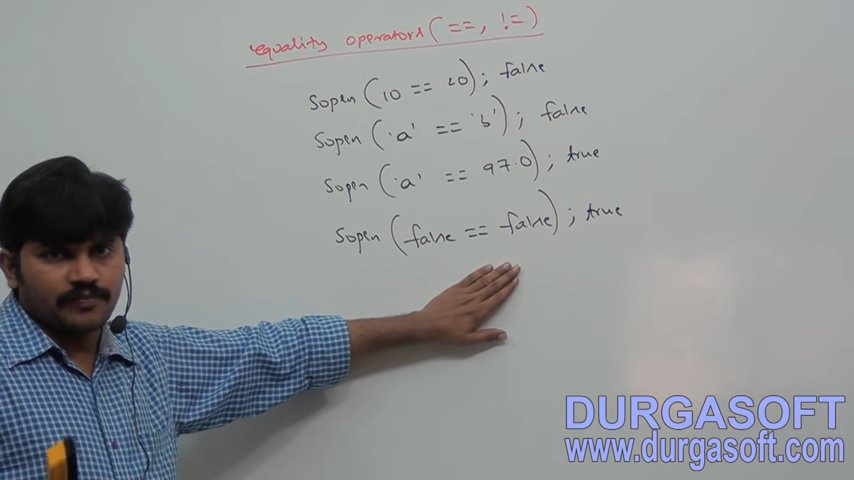 equality operators (==, !=)
Sopen (10 == 20); false
Sopen ('a' == 'b'); false
Sopen ('a' == 97.0); true
Sopen (false == false); true
DURGASOFT
www.durgasoft.com